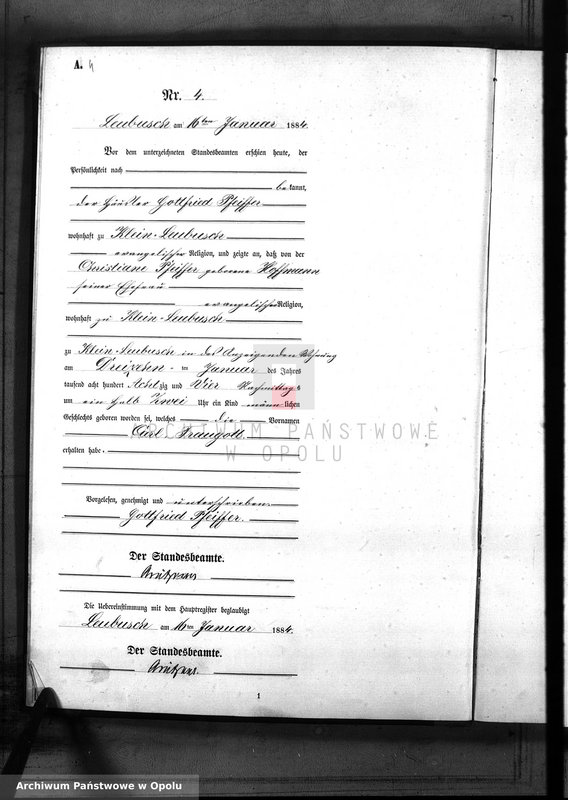 A. 4
Nr. 4.
Leubusch am 16ten Januar 1884.
Vor dem unterzeichneten Standesbeamten erschien heute, der
Persönlichkeit nach
bekannt,
der Häusler Gottfried Pfeiffer
wohnhaft zu Klein-Leubusch
evangelischer Religion, und zeigte an, daß von der
Christiane Pfeiffer geborene Hoffmann
seiner Ehefrau
evangelischer Religion,
wohnhaft zu Klein-Leubusch
zu Klein-Leubusch in des Anzeigenden Wohnung
am Dreizehn-ten Januar des Jahres
tausend acht hundert Achtzig und Vier Nachmittags
um ein halb Zwei Uhr ein Kind männlichen
Geschlechts geboren worden sei, welches die Vornamen
Carl Traugott
erhalten habe.
Vorgelesen, genehmigt und unterschrieben.
Gottfried Pfeiffer.
Der Standesbeamte.
Die Uebereinstimmung mit dem Hauptregister beglaubigt
Leubusch am 16ten Januar 1884.
Der Standesbeamte.
1
ARCHIWUM PAŃSTWOWE
W OPOLU
Archiwum Państwowe w Opolu